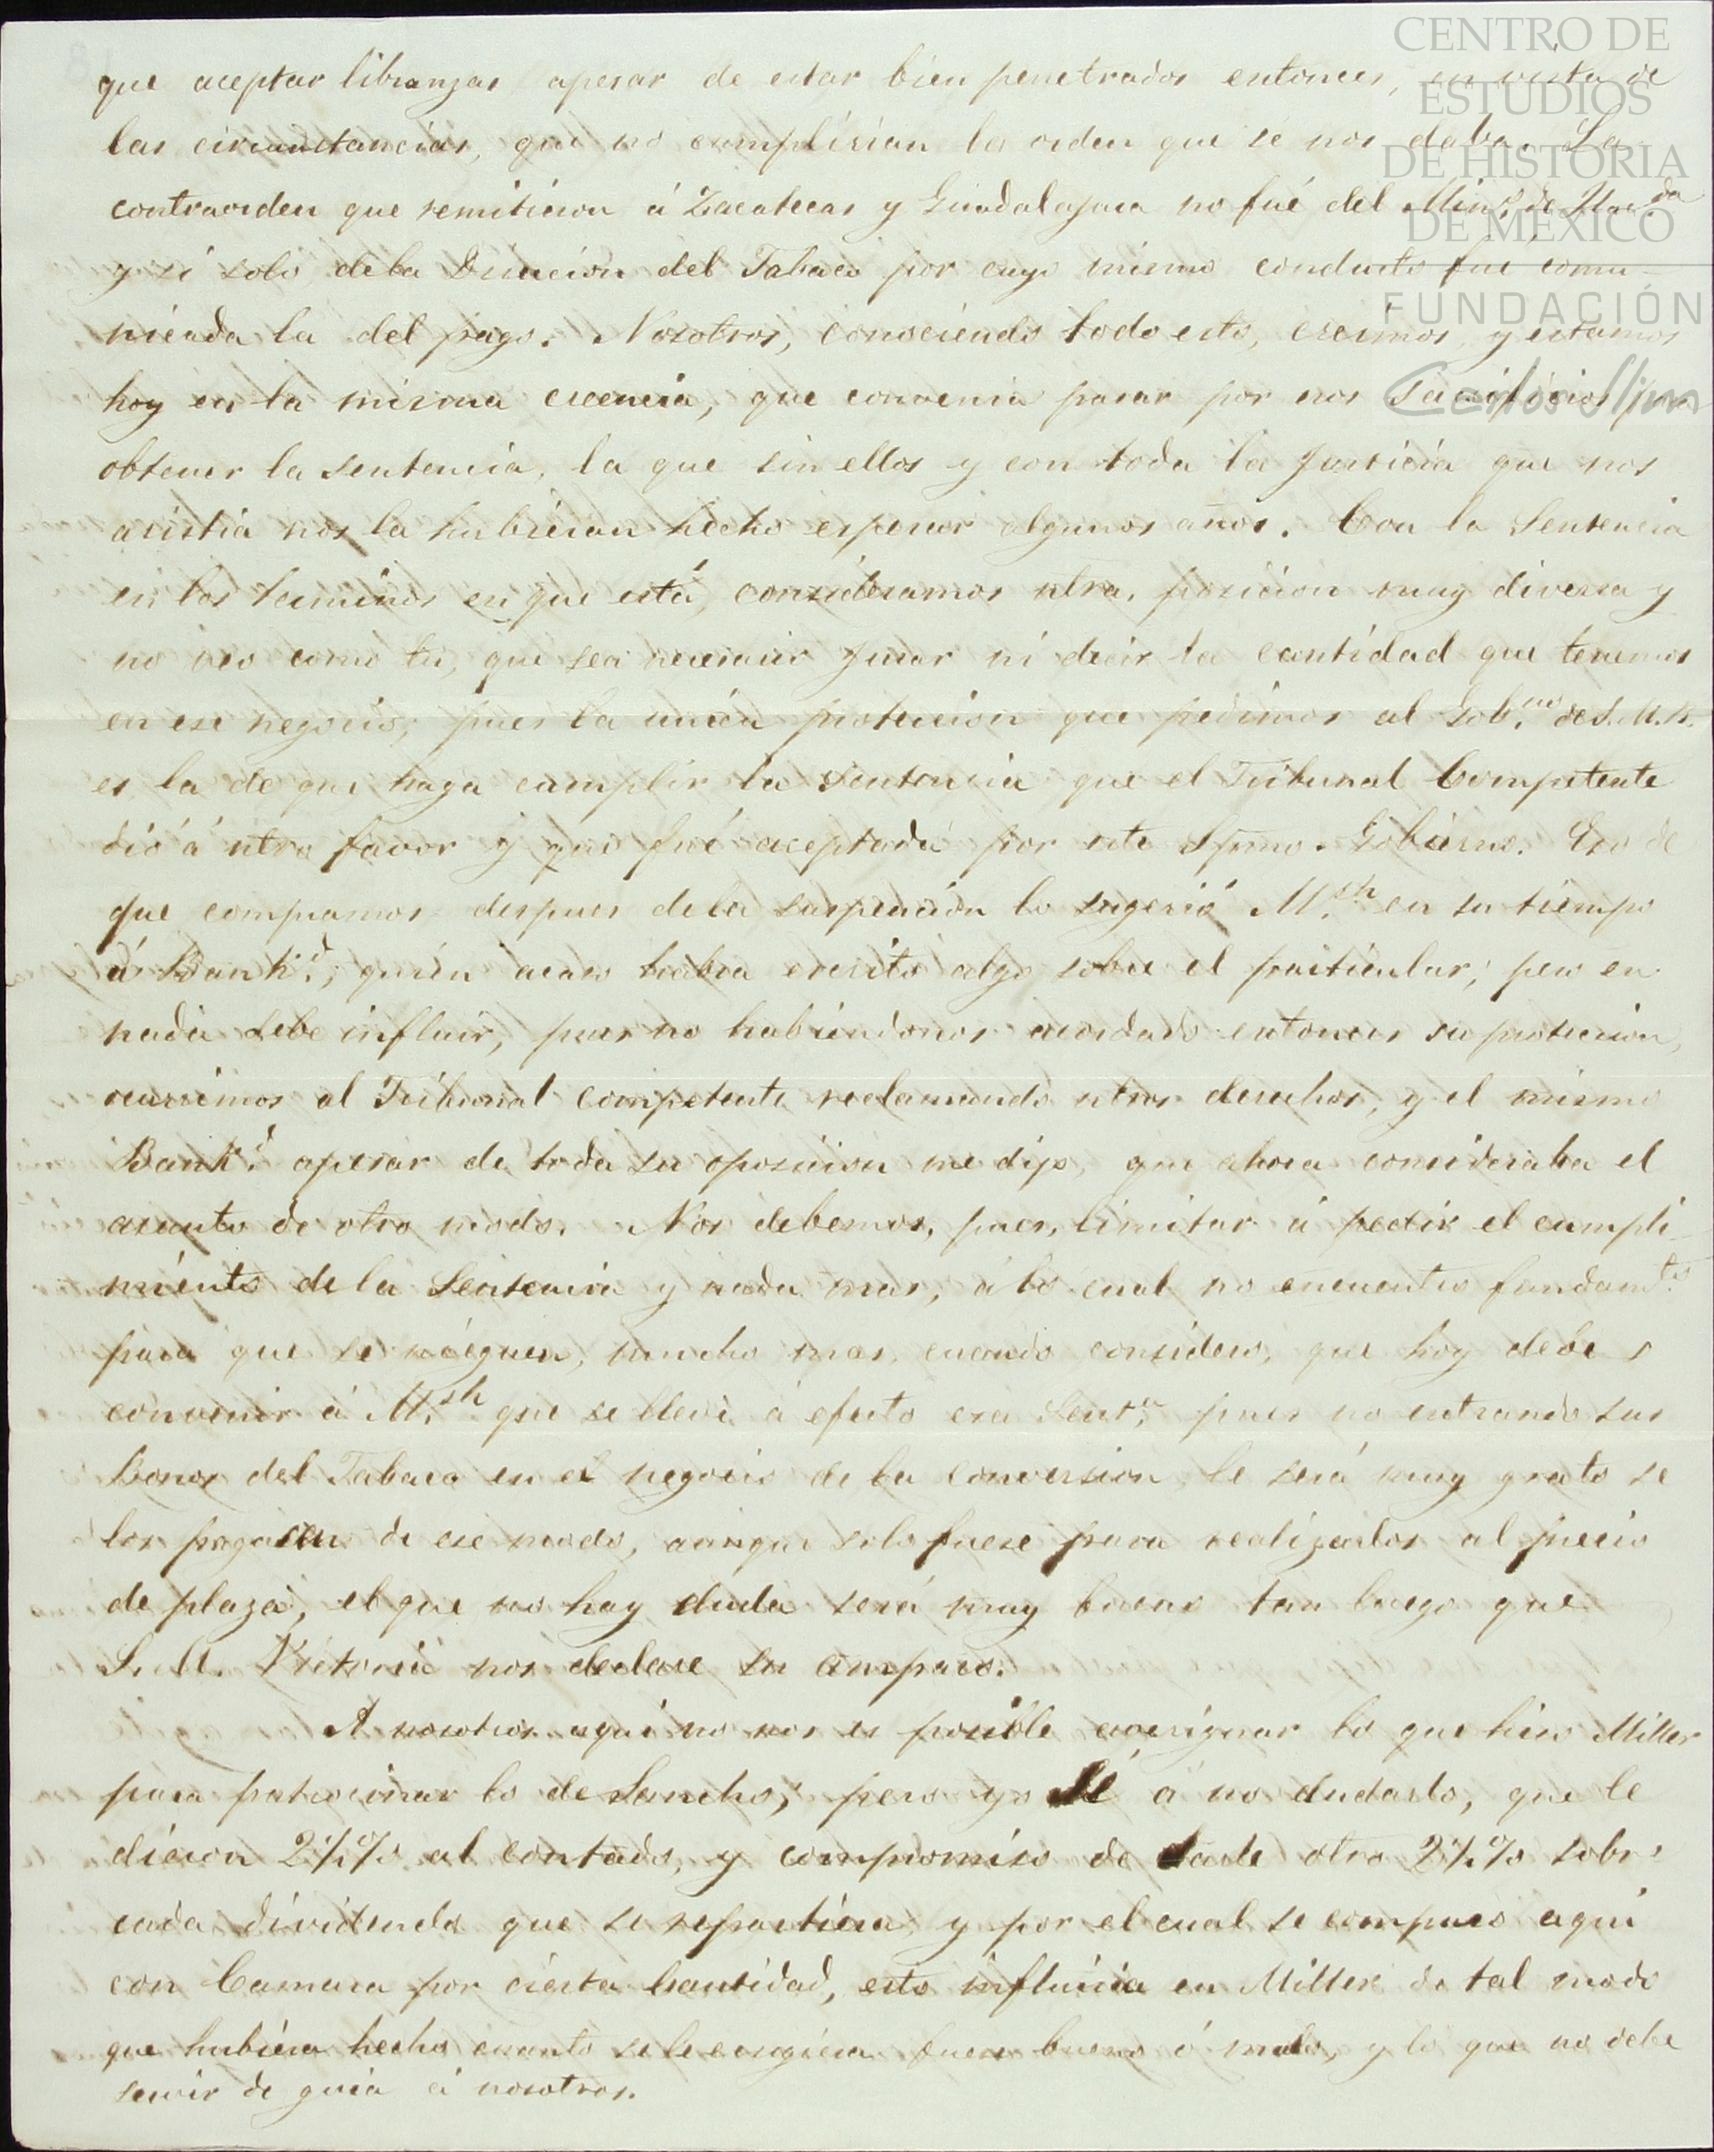 que aceptar libranzas apesar de estar bien penetrados entonces, en vista de
las circunstancias, que no cumplirian la orden que se nos daba. La
contraorden que remitieron á Zacatecas y Guadalajara no fué del Min.º de Hac.da
y si solo de la Direccion del Tabaco por cuyo mismo conducto fué comu-
nicada la del pago. Nosotros, conociendo todo esto, creimos, y estamos
hoy en la misma creencia, que convenia pasar por esos sacrificios para
obtener la sentencia, la que sin ellos y con toda la Justicia que nos
acistia nos la hubieran hecho esperar algunos años. Con la Sentencia
en los terminos en que está, consideramos ntra. posicion muy diversa y
no veo como tu, que sea necesario jurar ni decir la cantidad que tenemos
en ese negocio; pues la unica proteccion que pedimos al Gob.no de S. M. B.
es la de que haga cumplir la sentencia que el Tribunal Competente
dió á ntro favor y que fué aceptada por este Spmo. Gobierno. Eso de
que compramos despues de la suspencion lo sugerió M.sh en su tiempo
á Bankd., quien acaso habra escrito algo sobre el particular; pero en
nada debe influir, pues no habiendonos acordado entonces su proteccion,
ocurrimos al Tribunal competente reclamando ntros derechos, y el mismo
Bankd. apesar de toda su oposicion me dijo, que ahora consideraba el
asunto de otro modo. Nos debemos, pues, limitar á pedir el cumpli-
miento de la Sentencia y nada mas, á lo cual no encuentro fundam.to
para que se nieguen, mucho mas, cuando considero, que hoy debe
convenir á M.sh que se lleve á efecto esa Sent.a pues no entrando sus
Bonos del Tabaco en el negocio de la conversion le será muy grato se
los pagasen de ese modo, aunque solo fuese para realizarlos al precio
de plaza, el que no hay duda será muy bueno tan luego que
S. M. Victoria nos declare su amparo.
A nosotros aqui no nos es posible averiguar lo que hizo Miller
para patrocinar lo de Sancho; pero yo sé á no dudarlo, que le
dieron 2½% al contado, y compromiso de darle otro 2½% sobre
cada dividendo que se repartiera y por el cual se compuso aqui
con Camara por cierta Cantidad, esto influiria en Miller de tal modo
que hubiera hecho cuanto se le exigiera fuera bueno ó malo, y lo que no debe
servir de guia á nosotros.
CENTRO DE
ESTUDIOS
DE HISTORIA
DE MÉXICO
FUNDACIÓN
Carlos Slim